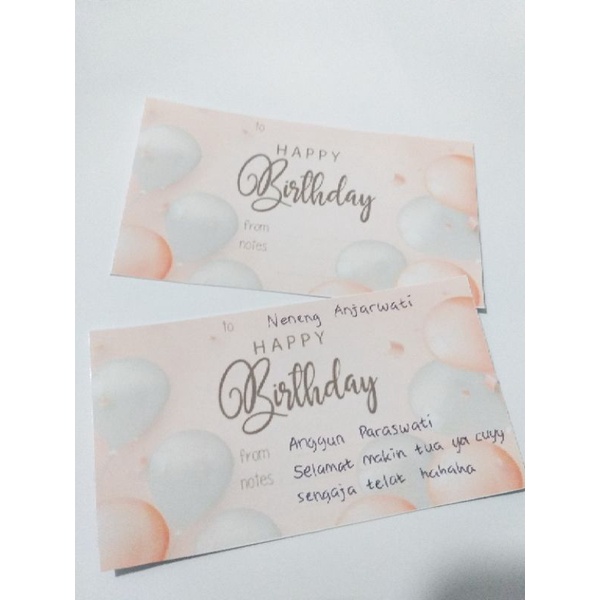 to
HAPPY
Birthday
from
notes
to Neneng Anjarwati
HAPPY
Birthday
from Anggun Paraswati
notes Selamat makin tua ya cuyy
sengaja telat hahaha